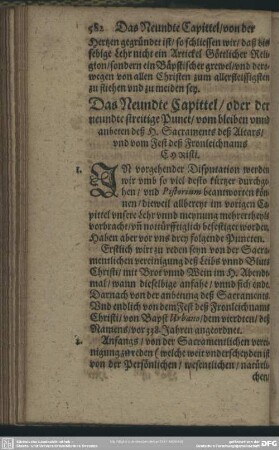 582 Das Neundte Capittel/ von der
Hertzen gegründet ist/ so schliessen wir/ daß dis
selbige Lehr nicht ein Artickel Göttlicher Reli-
gion/ sondern ein Bäpstischer grewel/ vnd der-
wegen von allen Christen zum allerfleissigsten
zu fliehen vnd zu meiden sey.
Das Neundte Capittel/ oder der
neundte streitige Punct/ vom bleiben vnnd
anbeten deß H. Sacraments deß Altars/
vnd vom Fest deß Fronleichnams
Christi.
1. IN vorgehender Disputation werden
wir vmb so viel desto kürtzer durchge-
hen/ vnd Pistorium beantworten kön-
nen/ dieweil allbereyt im vorigen Ca-
pittel vnsere Lehr vnnd meynung mehrertheyls
vorbracht/ vñ notürfftiglich befestiget worden.
Haben aber vor vns drey folgende Puncten.
Erstlich wirt zu reden seyn von der Sacra-
mentlichen vereinigung deß Leibs vnnd Bluts
Christi/ mit Brot vnnd Wein im H. Abend-
mal/ wann dieselbige anfahe/ vnnd sich ende.
Darnach von der anbetung deß Sacraments.
Vnd endlich von dem Fest deß Fronleichnams
Christi/ von Bapst Urbano/ dem vierdten/ deß
Namens/ vor 338. Jahren angeordnet.
2. Anfangs/ von der Sacramentlichen verei-
nigung zu reden (welche weit vnderscheyden ist
von der Persönlichen/ wesentlichen/ natürli-
chen/